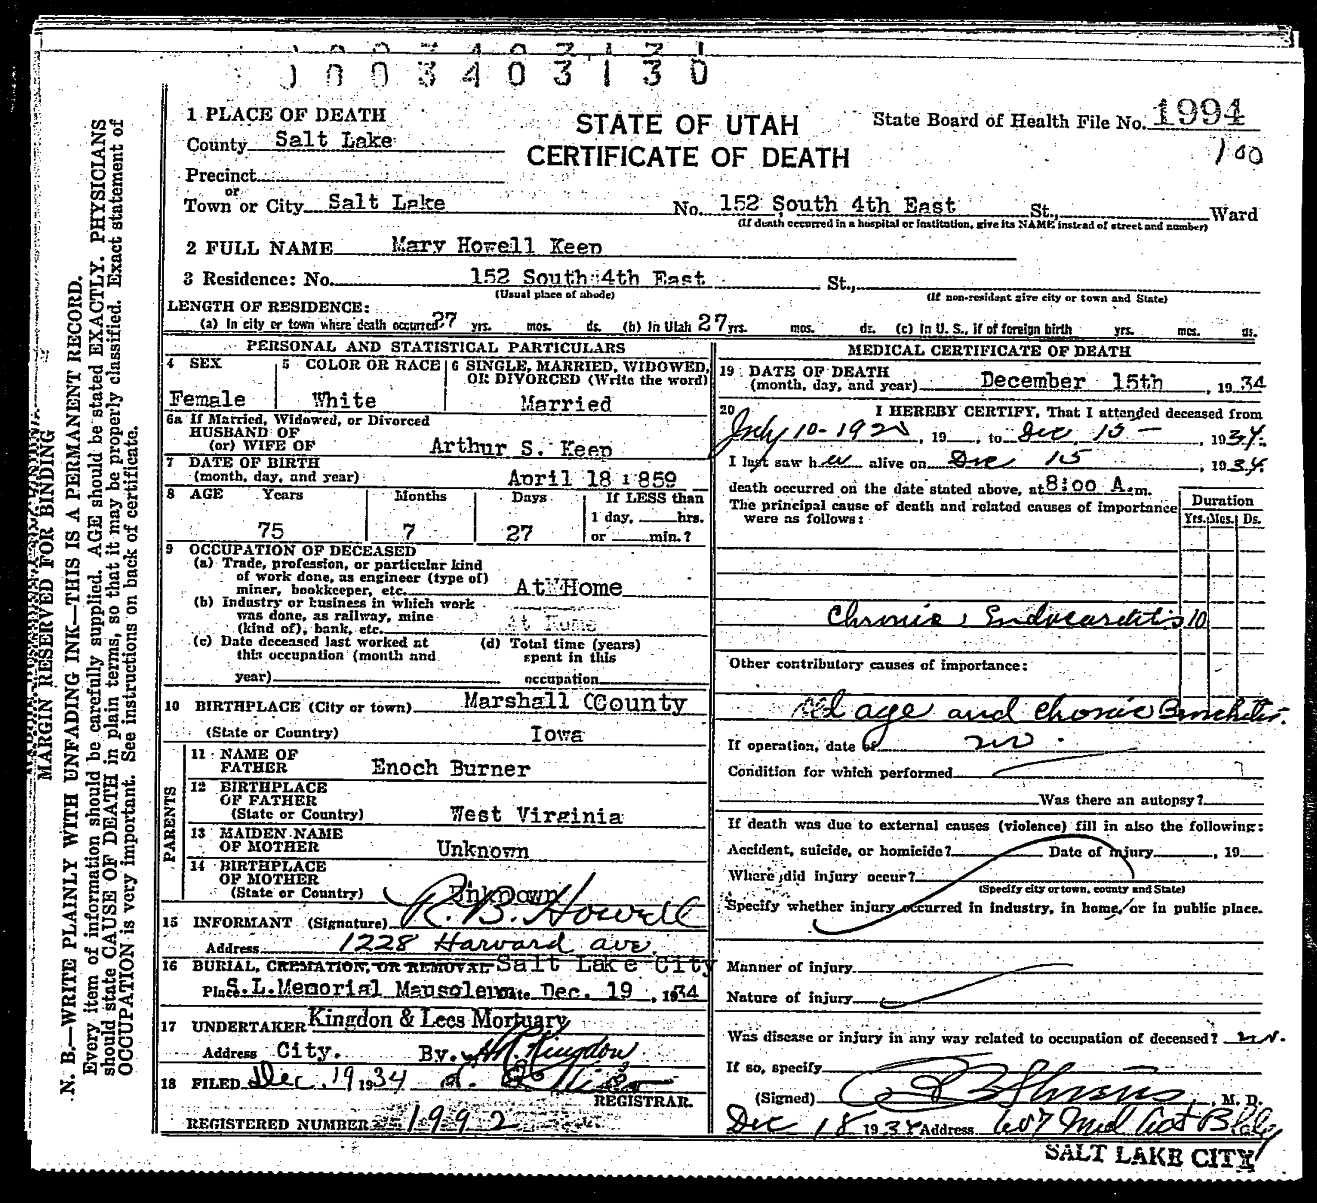 1003403130
1 PLACE OF DEATH
County Salt Lake
Precinct
or
Town or City Salt Lake
STATE OF UTAH
CERTIFICATE OF DEATH
State Board of Health File No. 1994
100
No. 152 South 4th East St., Ward
(If death occurred in a hospital or institution, give its NAME instead of street and number)
2 FULL NAME Mary Howell Keen
3 Residence: No. 152 South 4th East St.,
(Usual place of abode) (If non-resident give city or town and State)
LENGTH OF RESIDENCE:
(a) In city or town where death occurred 27 yrs. mos. ds. (b) In Utah 27 yrs. mos. ds. (c) In U. S., if of foreign birth yrs. mos. ds.
PERSONAL AND STATISTICAL PARTICULARS
4 SEX 5 COLOR OR RACE 6 SINGLE, MARRIED, WIDOWED,
OR DIVORCED (Write the word)
Female White Married
6a If Married, Widowed, or Divorced
HUSBAND OF
(or) WIFE OF Arthur S. Keen
7 DATE OF BIRTH
(month, day, and year) April 18 1859
8 AGE Years Months Days If LESS than
1 day, hrs.
75 7 27 or min.?
9 OCCUPATION OF DECEASED
(a) Trade, profession, or particular kind
of work done, as engineer (type of)
miner, bookkeeper, etc. At Home
(b) Industry or business in which work
was done, as railway, mine
(kind of), bank, etc. At Home
(c) Date deceased last worked at (d) Total time (years)
this occupation (month and spent in this
year) occupation
10 BIRTHPLACE (City or town) Marshall CCounty
(State or Country) Iowa
PARENTS
11 NAME OF
FATHER Enoch Burner
12 BIRTHPLACE
OF FATHER
(State or Country) West Virginia
13 MAIDEN NAME
OF MOTHER Unknown
14 BIRTHPLACE
OF MOTHER
(State or Country) Unknown
15 INFORMANT (Signature) R. B. Howell
Address 1228 Harvard ave.
16 BURIAL, CREMATION, OR REMOVAL Salt Lake City
Place S.L.Memorial Mausoleum Date Dec. 19, 1934
17 UNDERTAKER Kingdon & Lees Mortuary
Address City. By. Kingdon
18 FILED Dec. 19 1934
REGISTRAR.
REGISTERED NUMBER 1992
MEDICAL CERTIFICATE OF DEATH
19 DATE OF DEATH
(month, day, and year) December 15th, 1934
20 I HEREBY CERTIFY, That I attended deceased from
July 10-1925, 19 , to Dec 15 -, 1934.
I last saw her alive on Dec 15, 1934.
death occurred on the date stated above, at 8:00 A.m.
The principal cause of death and related causes of importance
were as follows:
Duration
Yrs. Mos. Ds.
Chronic Endocarditis 10
Other contributory causes of importance:
Old age and chronic Bronchitis.
If operation, date of no.
Condition for which performed
Was there an autopsy?
If death was due to external causes (violence) fill in also the following:
Accident, suicide, or homicide? Date of injury , 19
Where did injury occur?
(Specify city or town, county and State)
Specify whether injury occurred in industry, in home, or in public place.
Manner of injury
Nature of injury
Was disease or injury in any way related to occupation of deceased? no.
If so, specify
(Signed) , M. D.
Dec 18 1934 Address 607 Med Art Bldg
SALT LAKE CITY
MARGIN RESERVED FOR BINDING
N. B.—WRITE PLAINLY WITH UNFADING INK—THIS IS A PERMANENT RECORD.
Every item of information should be carefully supplied. AGE should be stated EXACTLY. PHYSICIANS
should state CAUSE OF DEATH in plain terms, so that it may be properly classified. Exact statement of
OCCUPATION is very important. See instructions on back of certificate.